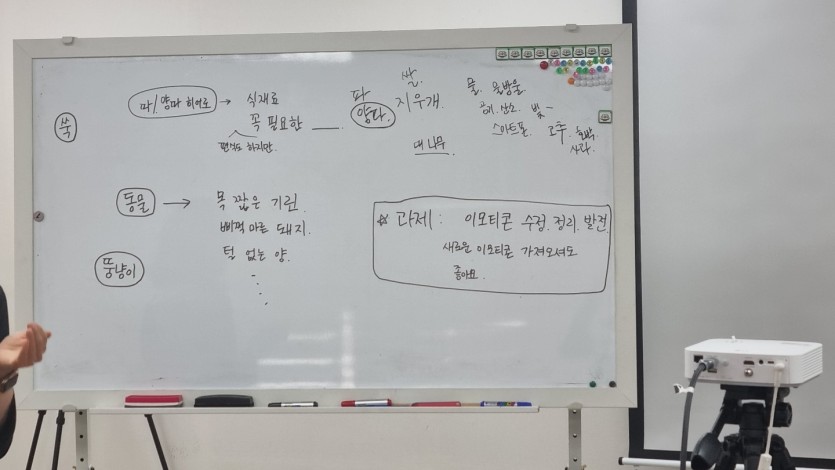 쑥
파/양파 히어로 → 식재료
꼭 필요한 ___
하지만.
파
양파.
쌀.
지우개.
대나무
물. 물방울.
공기. 산소. 빛
스마트폰. 고추.
사과.
동물 → 목 짧은 기린
삐쩍 마른 돼지.
털 없는 양.
뚱냥이
☆ 과제 : 이모티콘 수정. 정리. 발전
새로운 이모티콘 가져오셔도
좋아요.